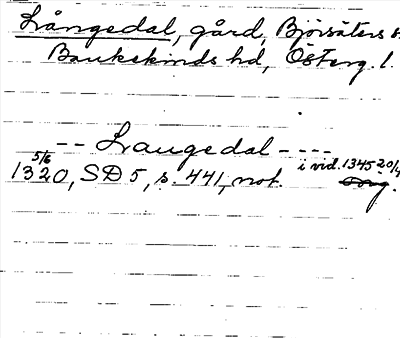 Långedal, gård, Björsäters s
Bankekinds hd, Österg. l.
-- Langedal ----
1320 5/6, SD 5, s. 441, not. i vid. 1345 20/4